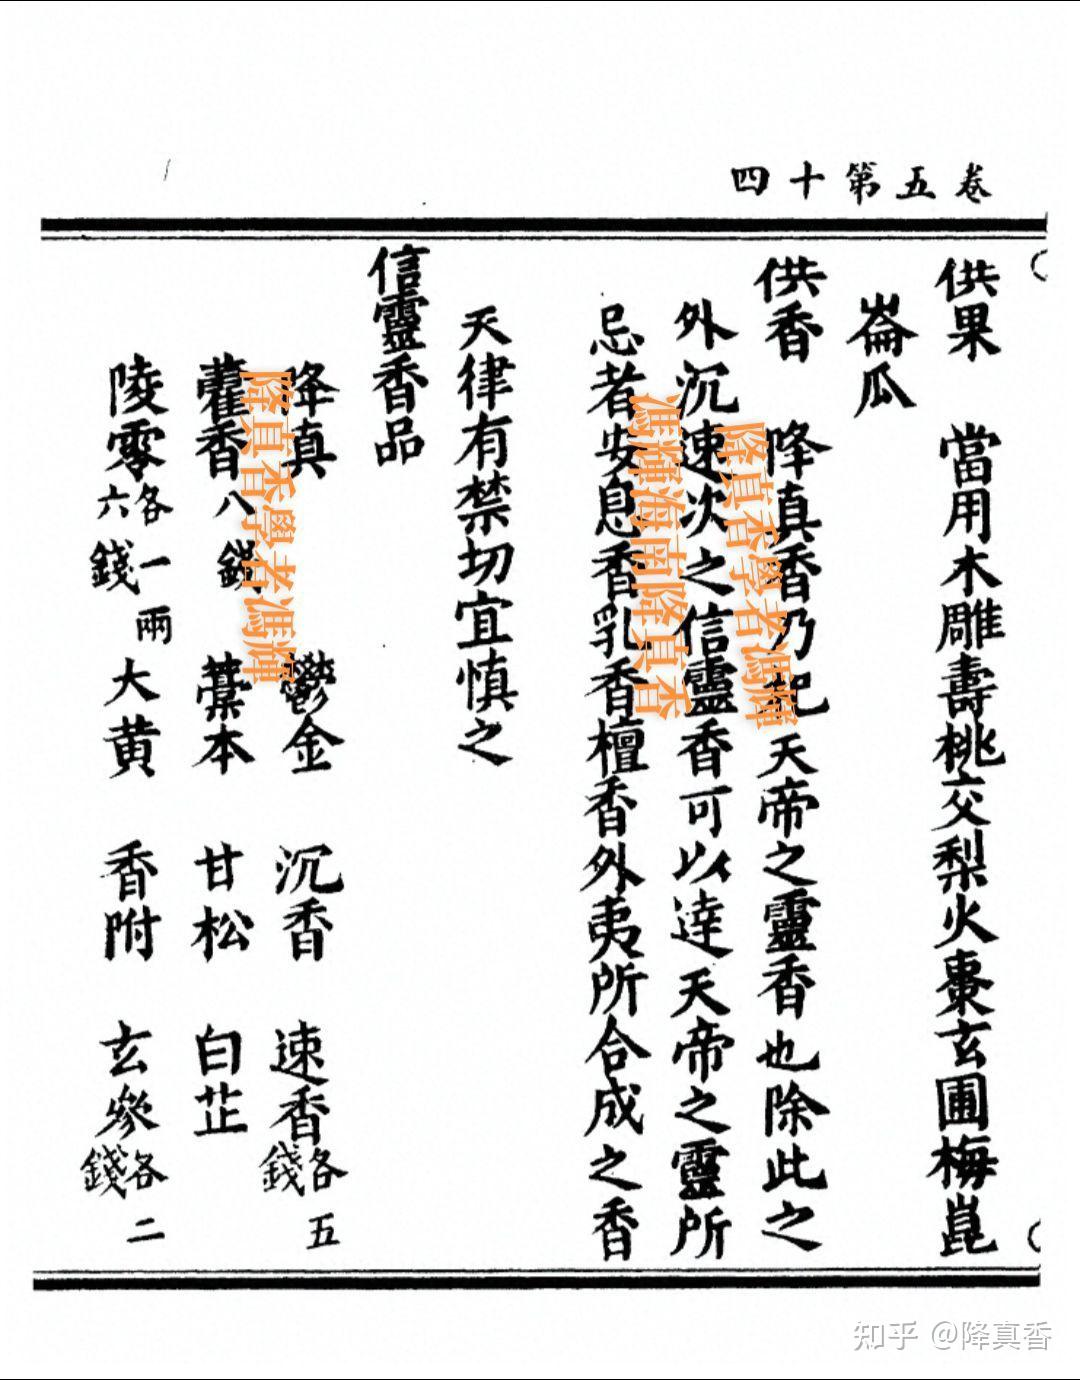 卷五第十四
供果　當用木雕壽桃交梨火棗玄圃梅崑
崙瓜
供香　降真香乃祀天帝之靈香也除此之
外沉速次之信靈香可以達天帝之靈所
忌者安息香乳香檀香外夷所合成之香
天律有禁切宜慎之
信靈香品
降真　鬱金　沉香　速香各五錢
藿香八錢　藁本　甘松　白芷
陵零各一兩六錢　大黄　香附　玄參各二錢
降真香學者馮輝
馮輝海南降真香
降真香學者馮輝
知乎 @降真香